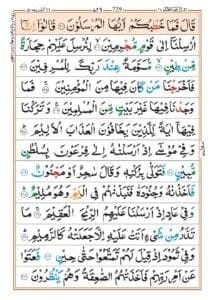 729
قَالَ فَمَا خَطْبُكُمْ اَيُّهَا الْمُرْسَلُوْنَ قَالُوْٓا اِنَّآ
اُرْسِلْنَآ اِلٰى قَوْمٍ مُّجْرِمِيْنَ لِنُرْسِلَ عَلَيْهِمْ حِجَارَةً
مِّنْ طِيْنٍ مُّسَوَّمَةً عِنْدَ رَبِّكَ لِلْمُسْرِفِيْنَ
فَاَخْرَجْنَا مَنْ كَانَ فِيْهَا مِنَ الْمُؤْمِنِيْنَ فَمَا
وَجَدْنَا فِيْهَا غَيْرَ بَيْتٍ مِّنَ الْمُسْلِمِيْنَ وَتَرَكْنَا
فِيْهَآ اٰيَةً لِّلَّذِيْنَ يَخَافُوْنَ الْعَذَابَ الْاَلِيْمَ
وَفِيْ مُوْسٰٓى اِذْ اَرْسَلْنٰهُ اِلٰى فِرْعَوْنَ بِسُلْطٰنٍ
مُّبِيْنٍ فَتَوَلّٰى بِرُكْنِهٖ وَقَالَ سٰحِرٌ اَوْ مَجْنُوْنٌ
فَاَخَذْنٰهُ وَجُنُوْدَهٗ فَنَبَذْنٰهُمْ فِي الْيَمِّ وَهُوَ مُلِيْمٌ
وَفِيْ عَادٍ اِذْ اَرْسَلْنَا عَلَيْهِمُ الرِّيْحَ الْعَقِيْمَ مَا
تَذَرُ مِنْ شَيْءٍ اَتَتْ عَلَيْهِ اِلَّا جَعَلَتْهُ كَالرَّمِيْمِ
وَفِيْ ثَمُوْدَ اِذْ قِيْلَ لَهُمْ تَمَتَّعُوْا حَتّٰى حِيْنٍ فَعَتَوْا
عَنْ اَمْرِ رَبِّهِمْ فَاَخَذَتْهُمُ الصّٰعِقَةُ وَهُمْ يَنْظُرُوْنَ